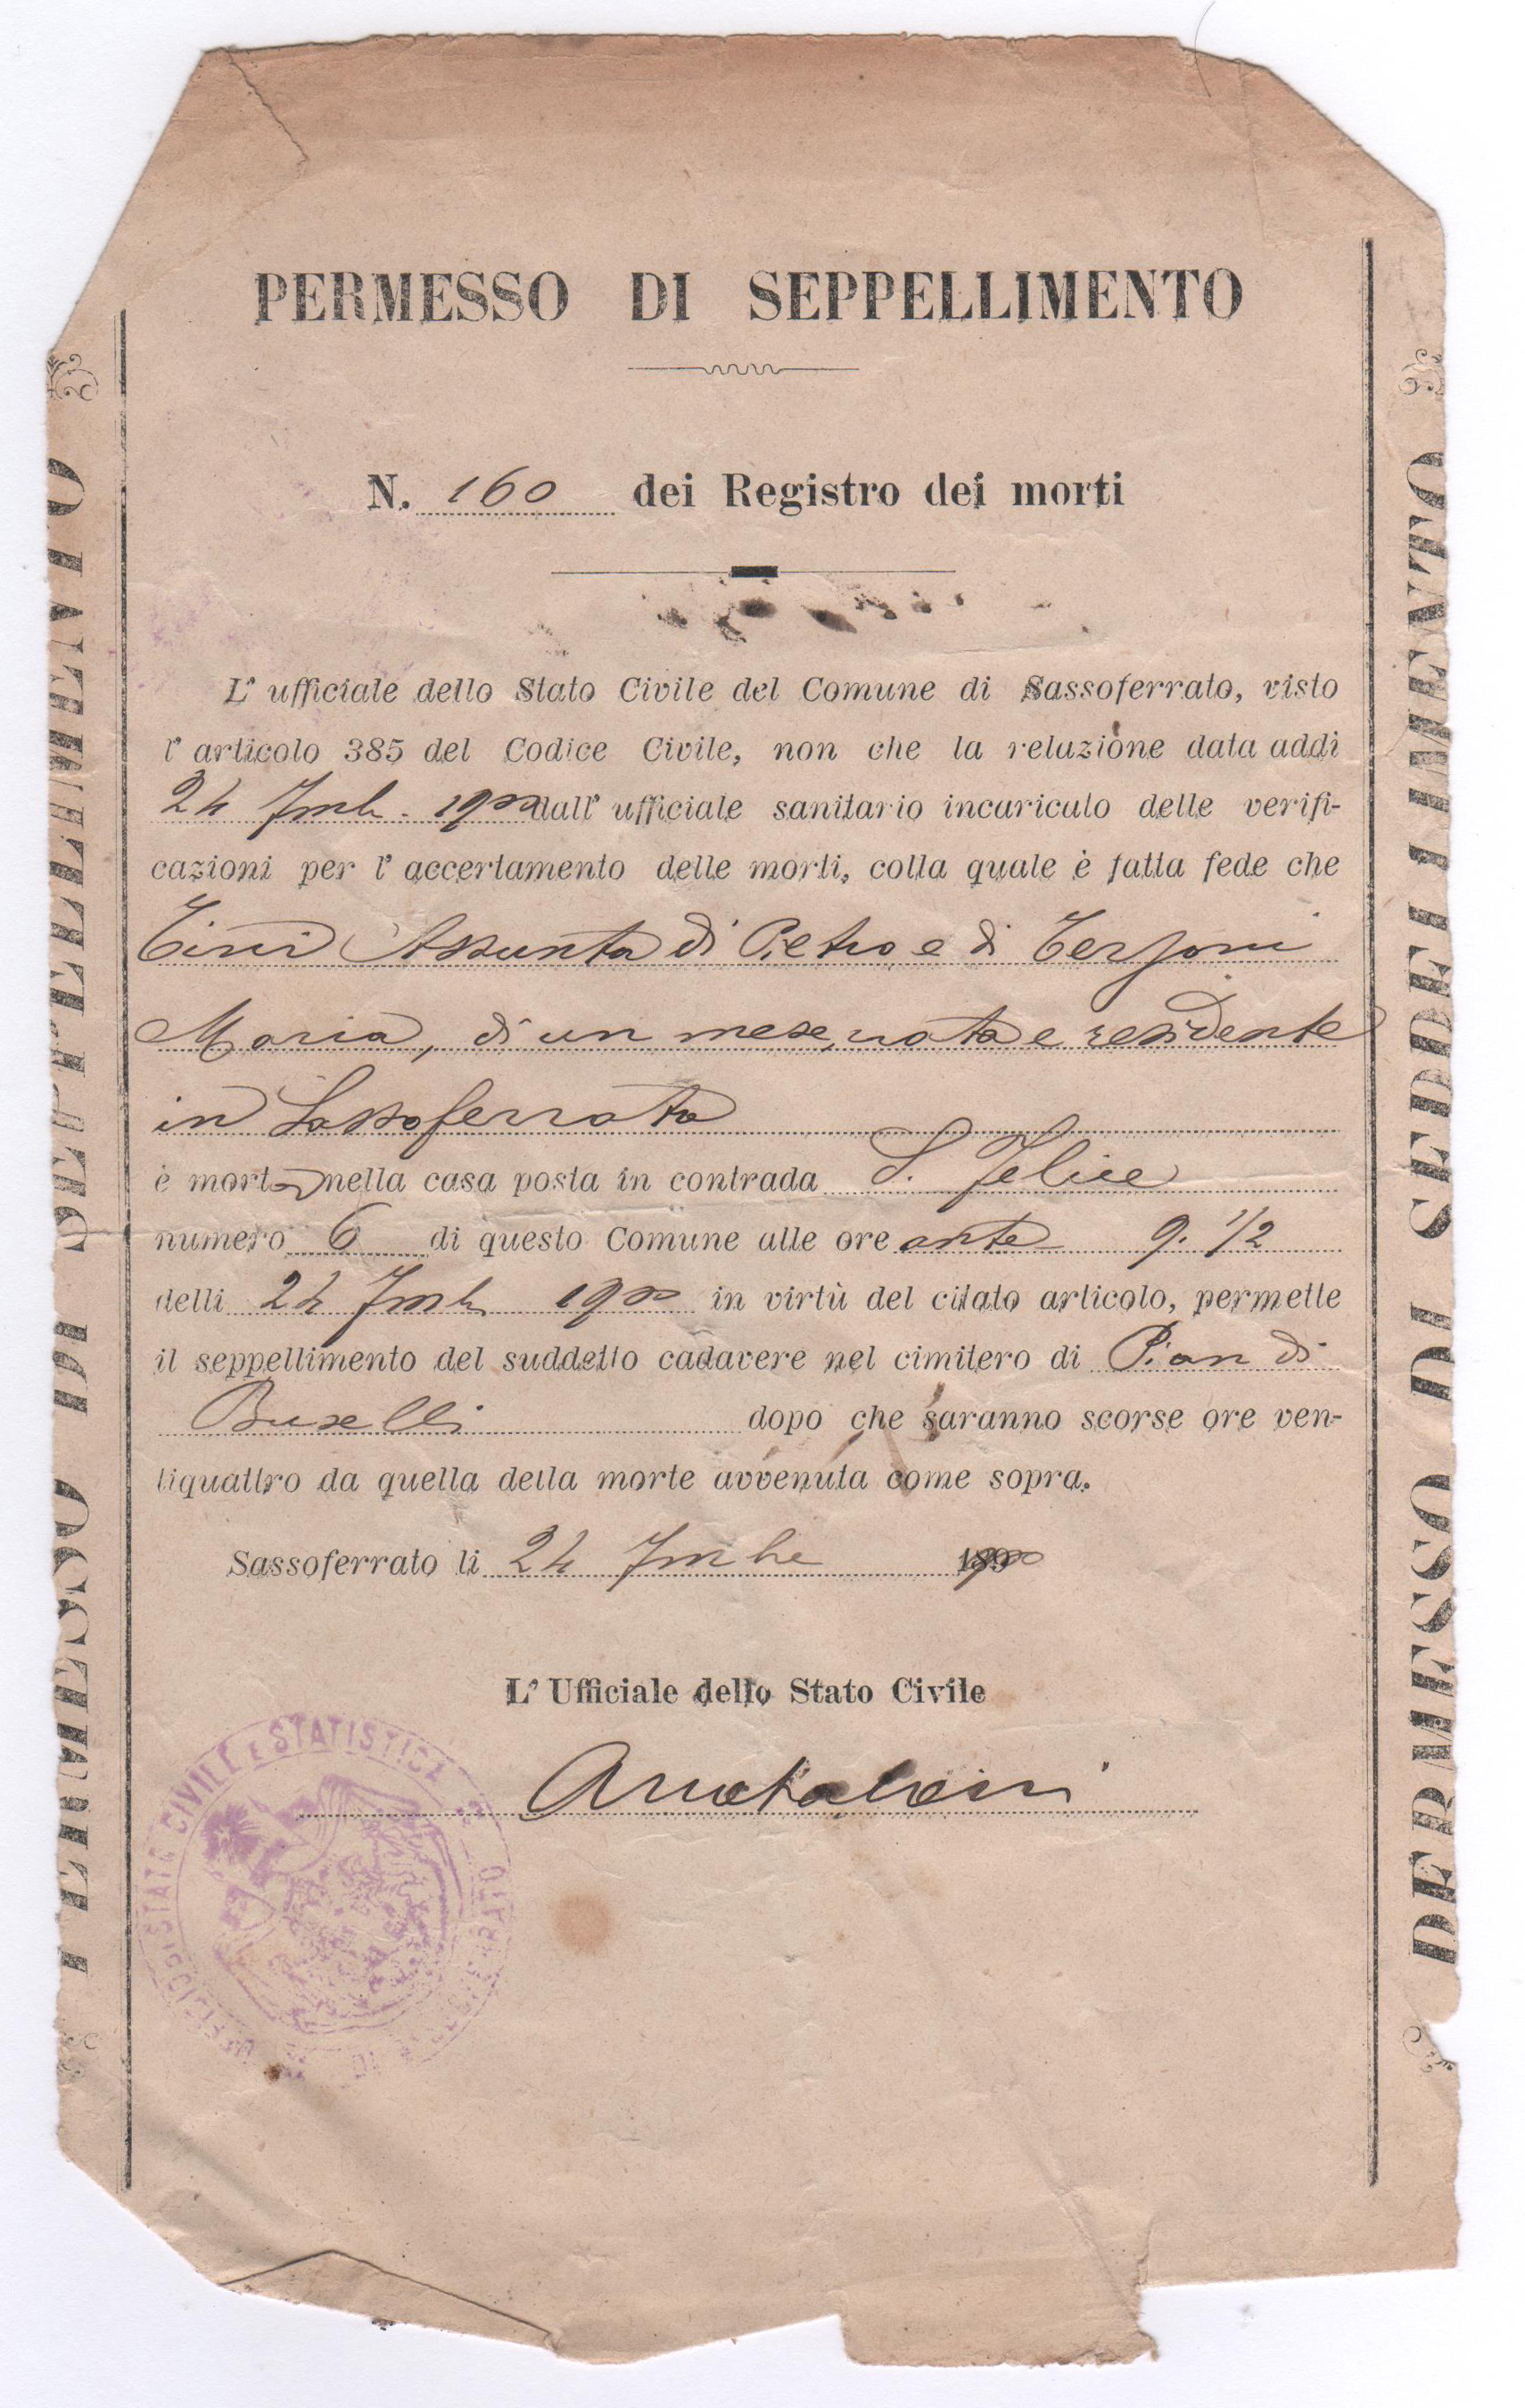 PERMESSO DI SEPPELLIMENTO
N. 160 dei Registro dei morti
L' ufficiale dello Stato Civile del Comune di Sassoferrato, visto
l' articolo 385 del Codice Civile, non che la relazione data addì
24 7mb. 1900 dall' ufficiale sanitario incaricato delle verifi-
cazioni per l' accertamento delle morti, colla quale è fatta fede che
Tini Assunta di Pietro e di Terzoni
Maria, di un mese, nata e residente
in Sassoferrato
è morta nella casa posta in contrada S. Felice
numero 6 di questo Comune alle ore ante 9. 1/2
delli 24 7mb 1900 in virtù del citato articolo, permette
il seppellimento del suddetto cadavere nel cimitero di Pian di
dopo che saranno scorse ore ven-
tiquattro da quella della morte avvenuta come sopra.
Sassoferrato li 24 7mbre 1900
L' Ufficiale dello Stato Civile
STATO CIVILE E STATISTICA
PERMESSO DI SEPPELLIMENTO
PERMESSO DI SEPPELLIMENTO